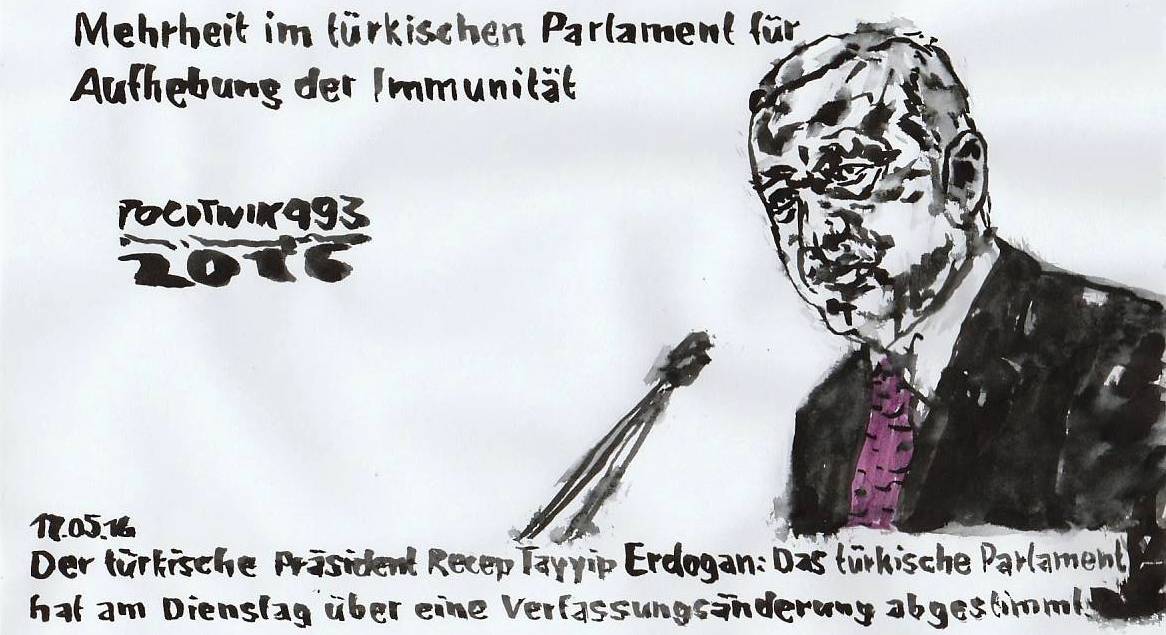 Mehrheit im türkischen Parlament für
Aufhebung der Immunität
POCITNIK493
2016
17.05.16
Der türkische Präsident Recep Tayyip Erdogan: Das türkische Parlament
hat am Dienstag über eine Verfassungsänderung abgestimmt